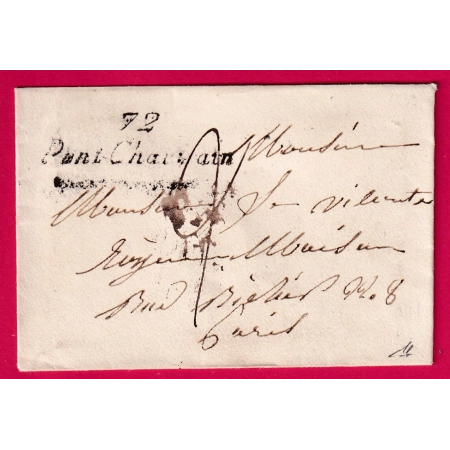 72
Pont-Chartrain
Monsieur
Monsieur Le vicomte
Rue Richer No. 8
Paris